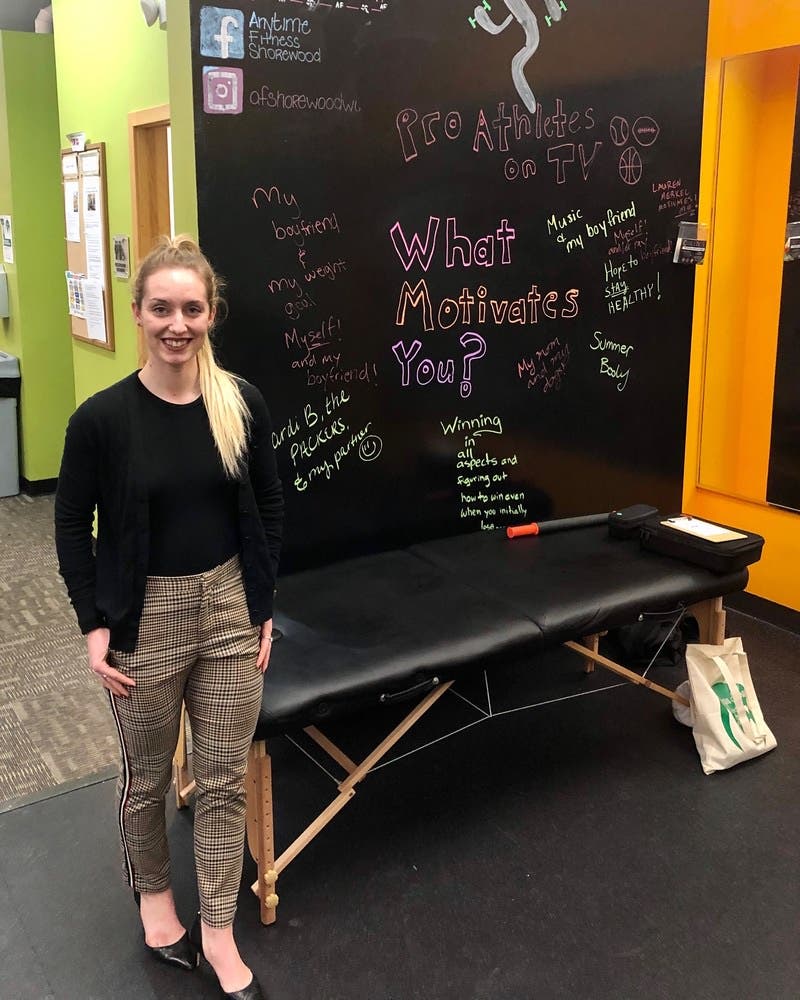 Anytime
Fitness
Shorewood
afshorewoodwi
Pro Athletes
on TV
My
boyfriend
&
my weight
goal
Myself!
and my
boyfriend!
Cardi B, the
PACKERS,
& my partner
What
Motivates
You?
Music
& my boyfriend
LAUREN
MERKEL
MOTIVATES
ME
Myself!
and/or my
boyfriend
Hope to
STAY
HEALTHY!
My mom
and my
dogs
Summer
Body
Winning
in
all
aspects and
figuring out
how to win even
when you initially
lose...